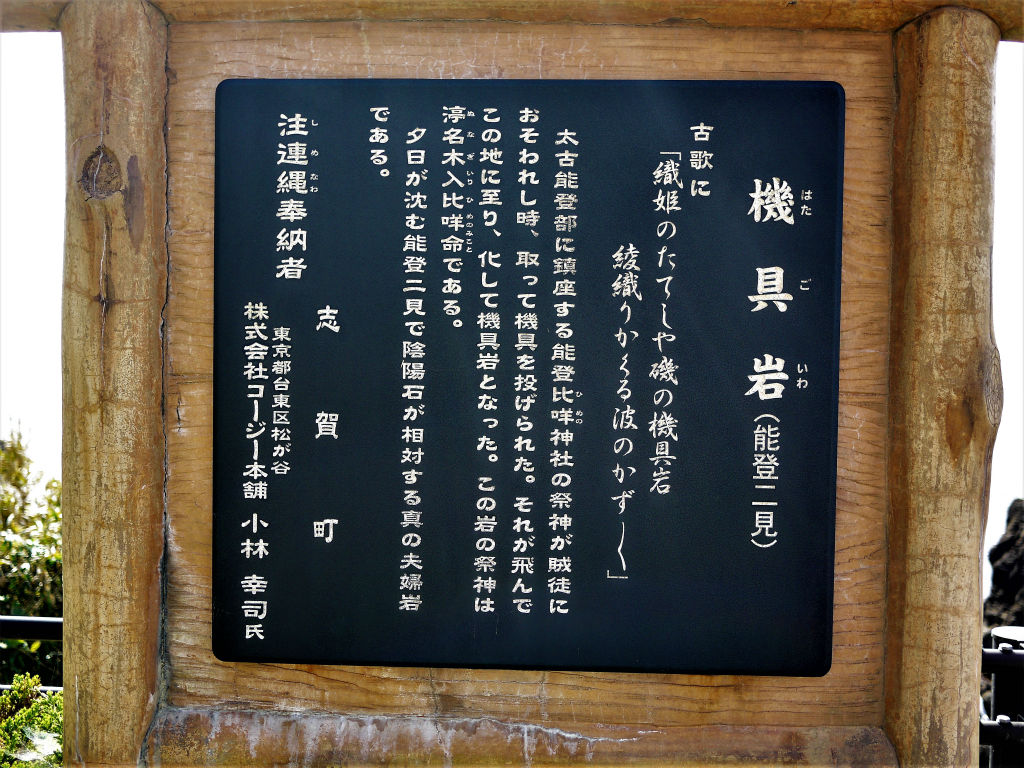 機具岩（能登二見）
はた ご いわ
古歌に
「織姫のたてしや磯の機具岩
綾織りかくる波のかずし〱」
太古能登部に鎮座する能登比咩神社の祭神が賊徒に
ひめの
おそわれし時、取って機具を投げられた。それが飛んで
この地に至り、化して機具岩となった。この岩の祭神は
渟名木入比咩命である。
ぬなぎいりひめのみこと
夕日が沈む能登二見で陰陽石が相対する真の夫婦岩
である。
注連縄奉納者
しめなわ
志賀町
東京都台東区松が谷
株式会社コージー本舗 小林 幸司氏